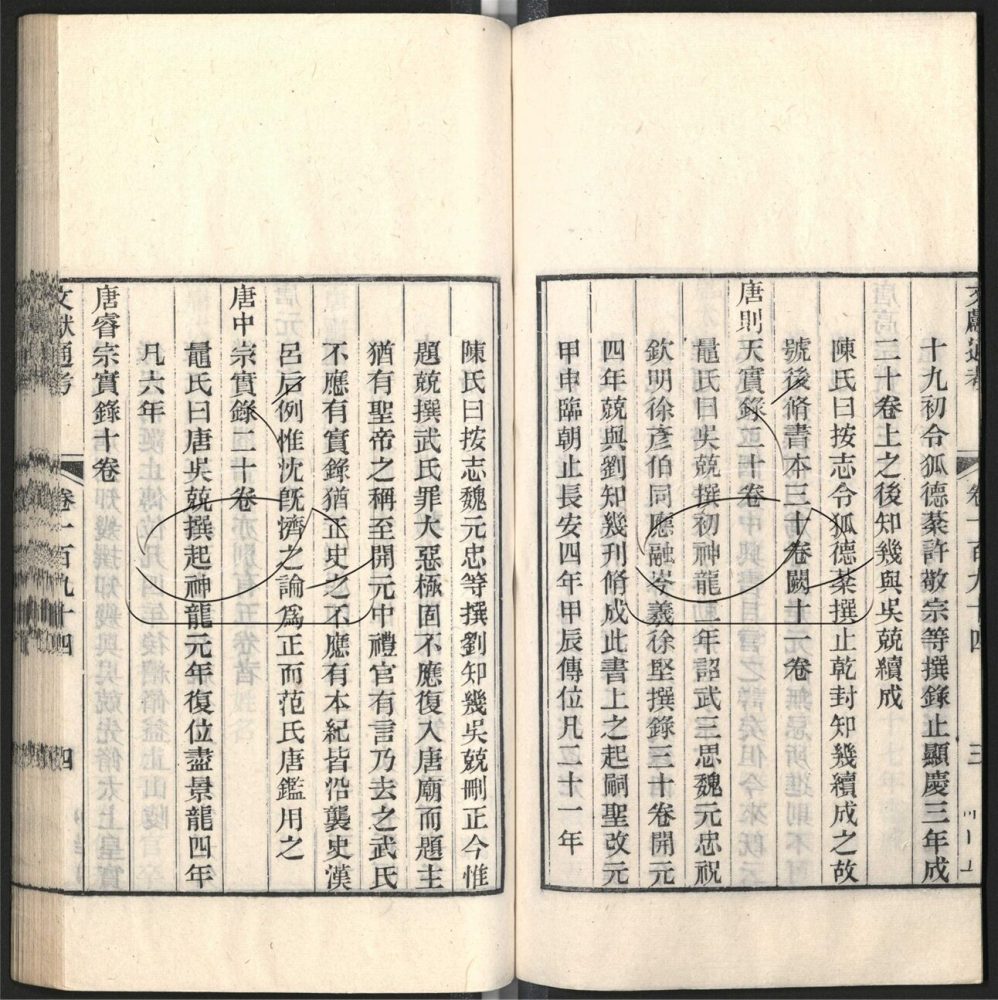 文獻通考 卷一百九十四 三
十九初令狐德棻許敬宗等撰錄止顯慶三年成
二十卷上之後知幾與吳兢續成
陳氏曰按志令狐德棻撰止乾封知幾續成之故
號後脩書本三十卷闕十一卷
唐則天實錄二十卷
鼂氏曰吳兢撰初神龍二年詔武三思魏元忠祝
欽明徐彥伯同應融岑羲徐堅撰錄三十卷開元
四年兢與劉知幾刊脩成此書上之起嗣聖改元
甲申臨朝止長安四年甲辰傳位凡二十一年
陳氏曰按志魏元忠等撰劉知幾吳兢刪正今惟
題兢撰武氏罪大惡極固不應復入唐廟而題主
猶有聖帝之稱至開元中禮官有言乃去之武氏
不應有實錄猶正史之不應有本紀皆沿襲史漢
呂后例惟沈旣濟之論爲正而范氏唐鑑用之
唐中宗實錄二十卷
鼂氏曰唐吳兢撰起神龍元年復位盡景龍四年
凡六年
唐睿宗實錄十卷
文獻通考 卷一百九十四 四